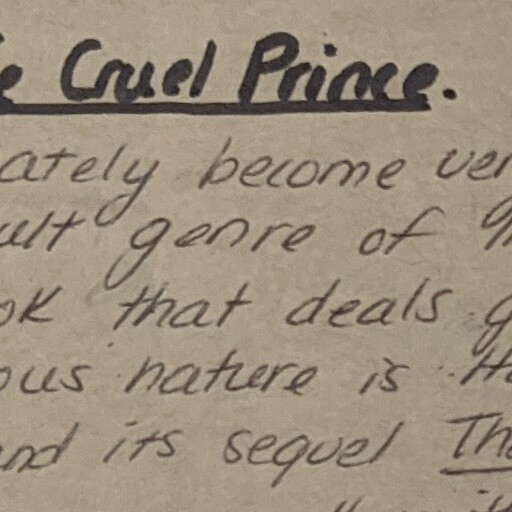 e Cruel Prince.
ately become ver
ult genre of
ok that deals g
ous nature is
and its sequel The